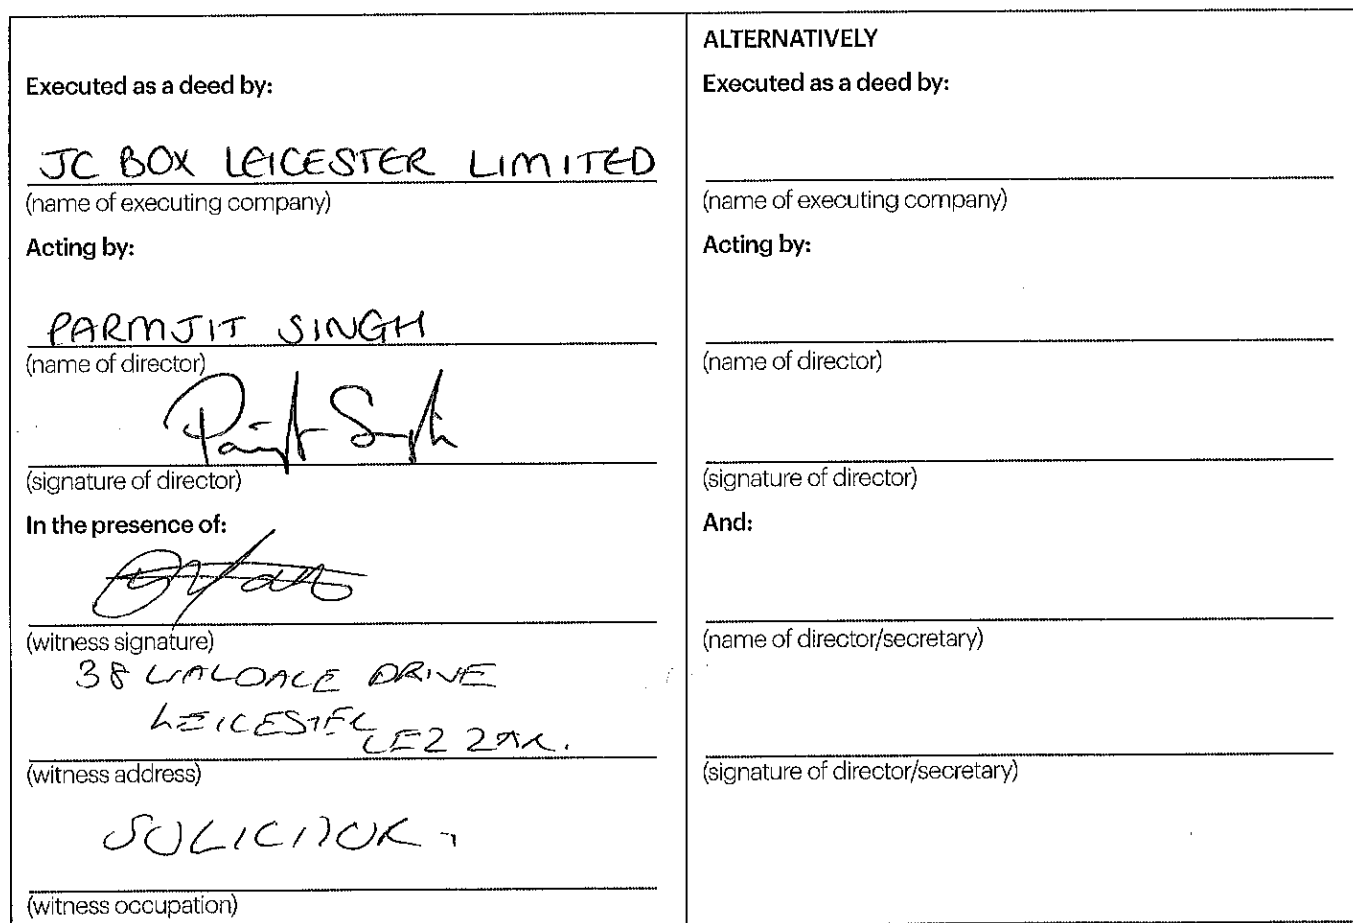 Executed as a deed by:
JC BOX LEICESTER LIMITED
(name of executing company)
Acting by:
PARMJIT SINGH
(name of director)
(signature of director)
In the presence of:
(witness signature)
38 DRIVE
LEICESTER
LE2
(witness address)
SOLICITOR
(witness occupation)
ALTERNATIVELY
Executed as a deed by:
(name of executing company)
Acting by:
(name of director)
(signature of director)
And:
(name of director/secretary)
(signature of director/secretary)